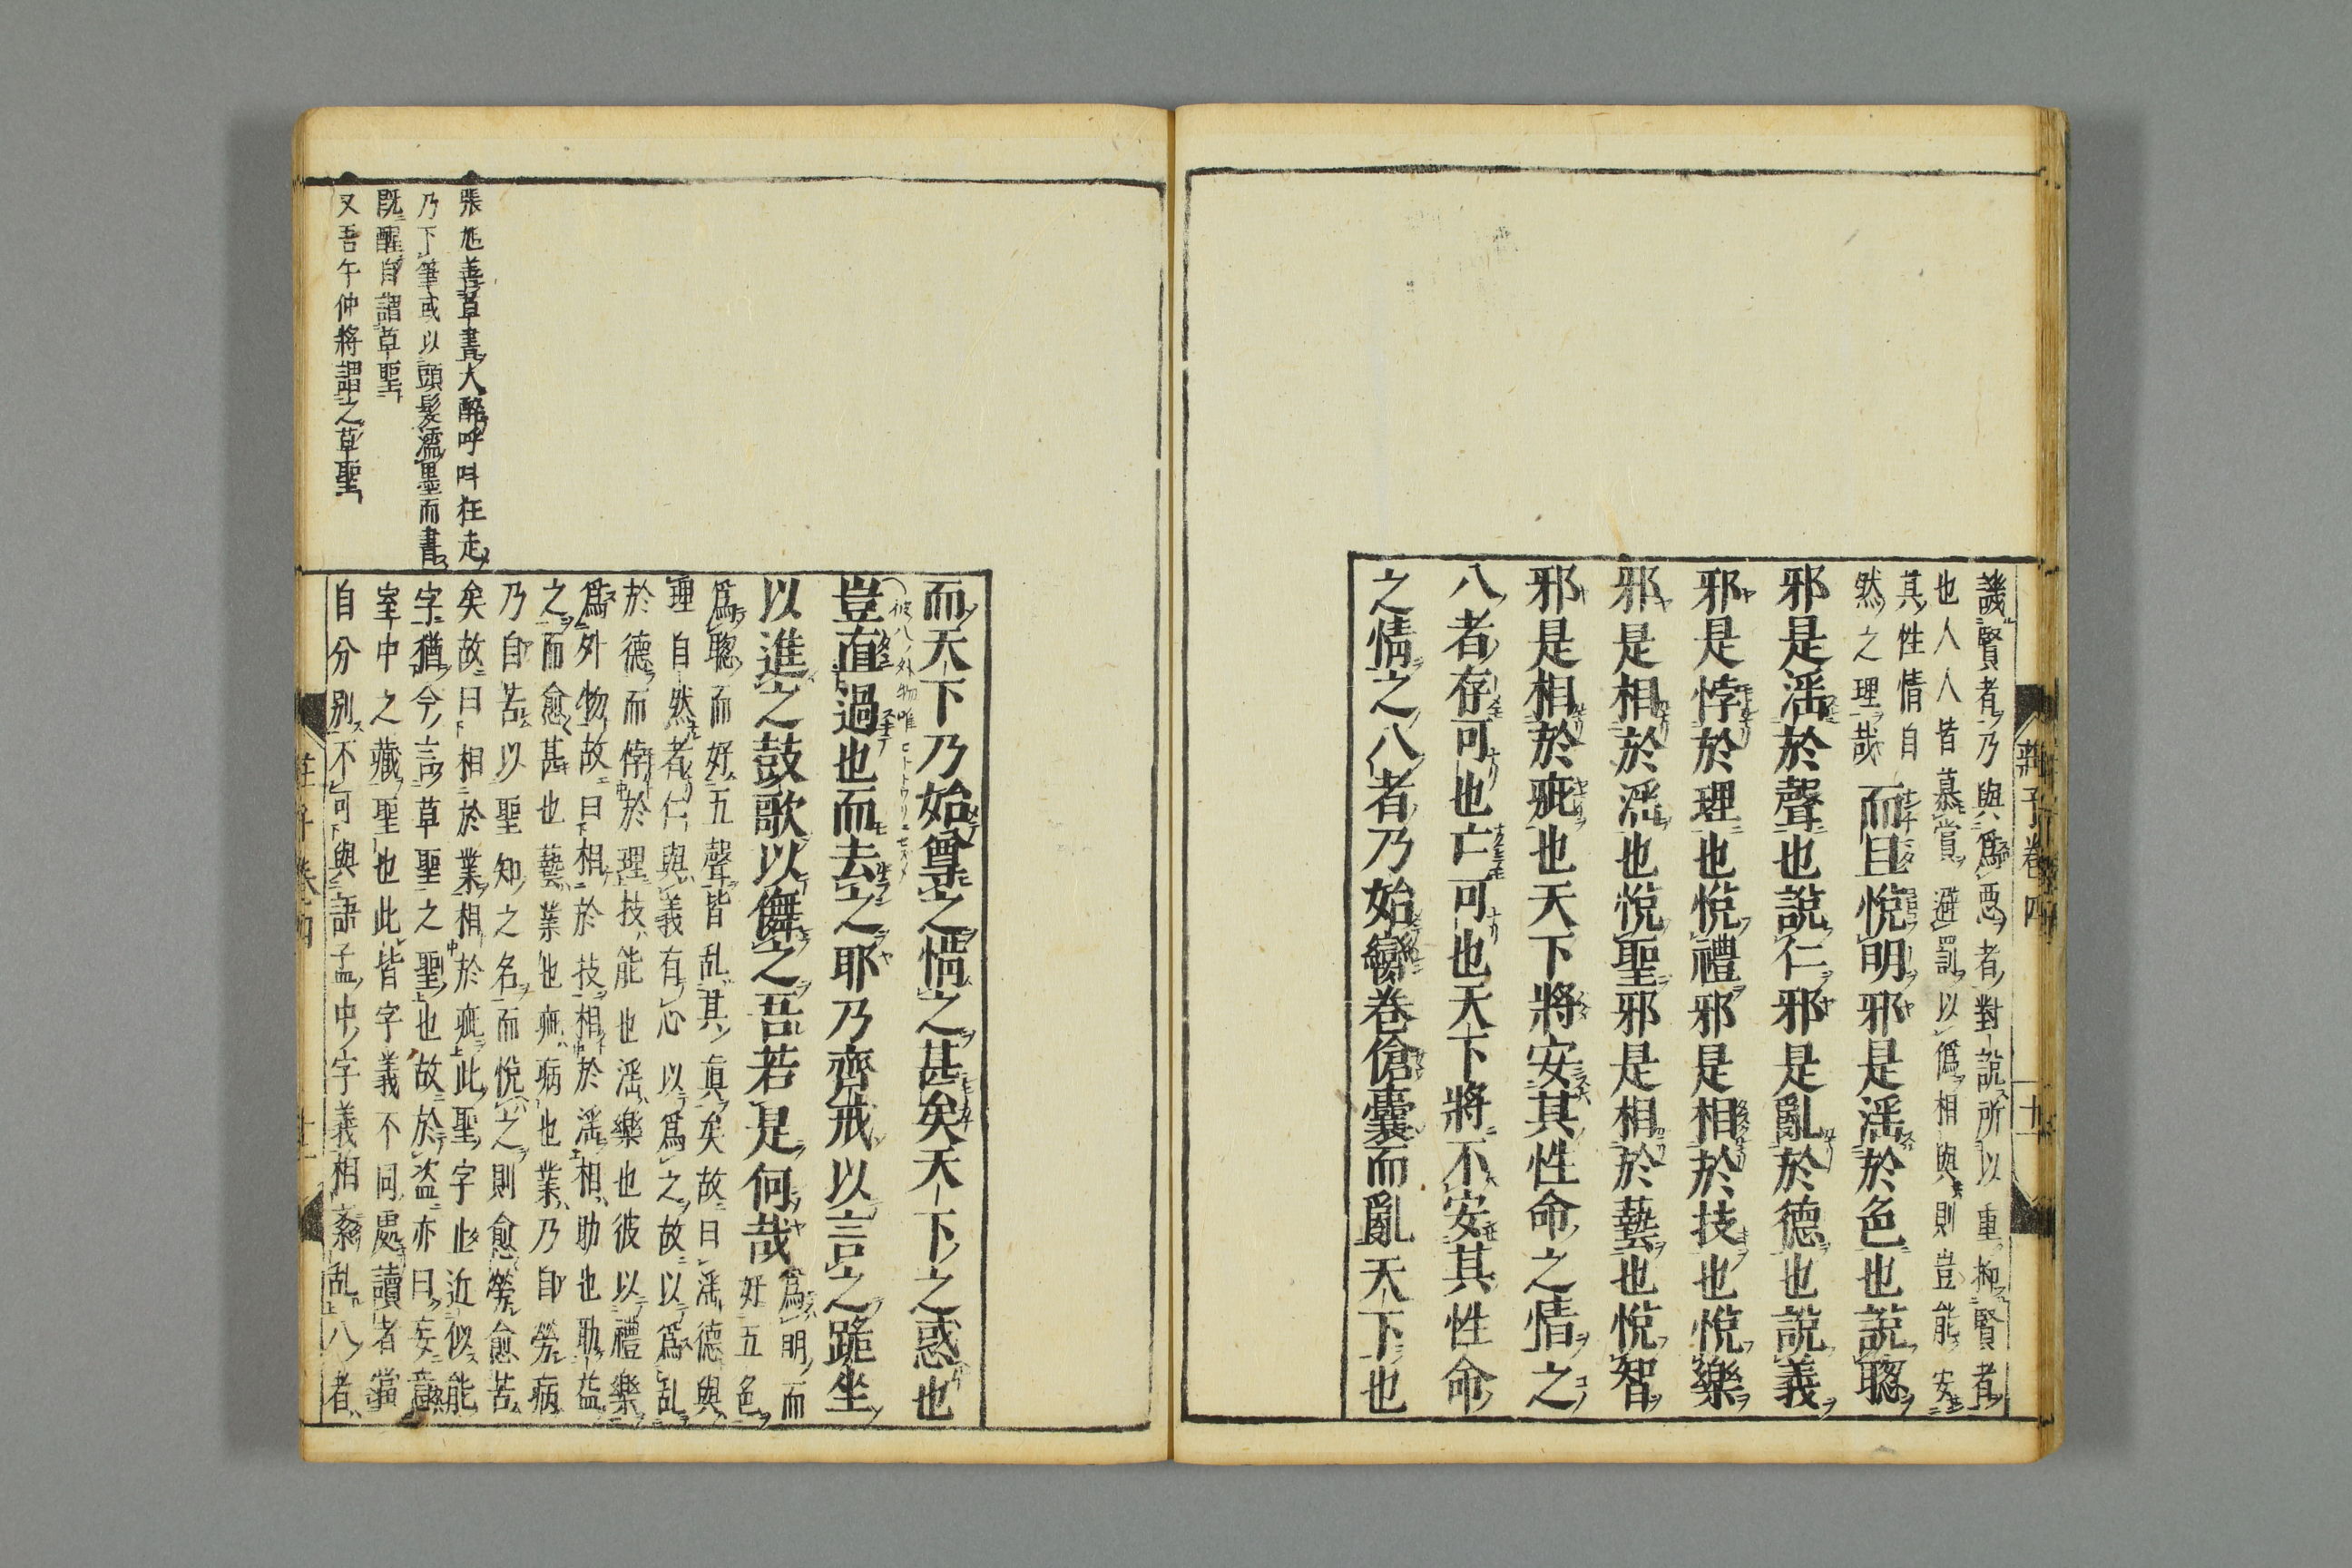 譏賢者乃與爲惡者對說所以重抑賢者
也人人皆慕賞避罰以僞相與則豈能安
其性情自
然之理哉而且悅明邪是淫於色也說聰
邪是淫於聲也說仁邪是亂於德也說義
邪是悖於理也悅禮邪是相於技也悅樂
邪是相於淫也悅聖邪是相於藝也悅智
邪是相於疵也天下將安其性命之情之
八者存可也亡可也天下將不安其性命
之情之八者乃始臠卷傖囊而亂天下也
莊子卷四
而天下乃始尊之惜之甚矣天下之惑也
彼八ノ外物唯
豈直過也而去之耶乃齊戒以言之跪坐
以進之鼓歌以儛之吾若是何哉爲明而
好五色
爲聰而好五聲皆乱其真矣故曰淫德與
理自然者仁與義有心以爲之故以爲乱
於德而悖於理技能也淫樂也彼以禮樂
爲外物故曰相於技相於淫相助也助益
之而愈甚也藝業也疵病也業乃自勞病
乃自苦以聖知之名而悅之則愈勞愈苦
矣故曰相於業相於疵此聖字止近似能
字猶今言草聖之聖也故於盜亦曰妄意
室中之藏聖也此皆字義不同處讀者當
自分別不可與語孟中字義相紊乱八者
張旭善草書大醉呼叫狂走
乃下筆或以頭髮濡墨而書
既醒自謂草聖
又吾午仲將謂之草聖
莊子卷四